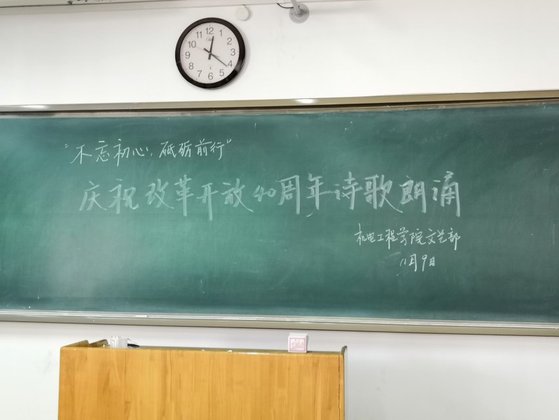 12
1
2
3
4
5
6
7
8
9
10
11
"不忘初心,砥砺前行"
庆祝改革开放40周年诗歌朗诵
机电工程学院文艺部
11月9日